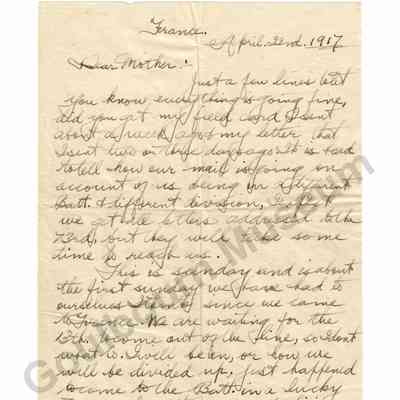 France.
April 22nd. 1917
Dear Mother:
Just a few lines to let
you know everything is going fine,
did you get my field card I sent
about a week ago & my letter that
I sent two or three days ago. It is hard
to tell how our mail is going on
account of us being in a different
Batt. & different division,
we get all letters addressed to the
73rd, but they will take some
time to reach us.
This is sunday and is about
the first sunday we have had to
ourselves since we came
to France. We are waiting for the
to come out of the line, so I dont
know who I will be in, or how we
will be divided up, just happened
to come to the Batt. in a lucky